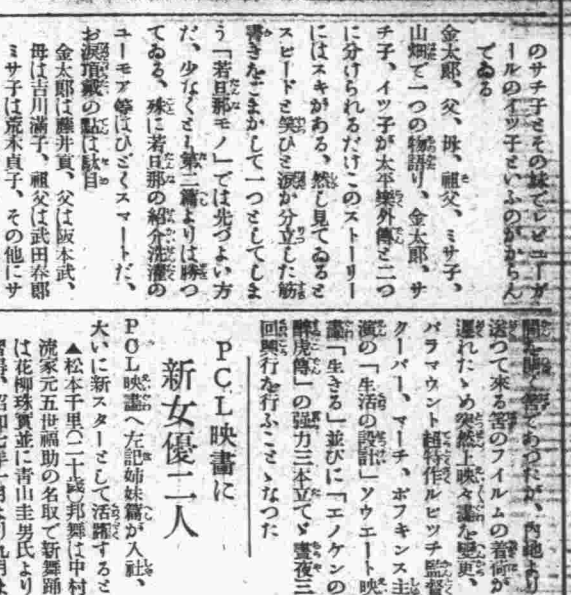 のサチ子とその妹でレビューガ
ールのイツ子といふのがからん
でゐる
金太郎、父、母、祖父、ミサ子、
山畑で一つの物語り、金太郎、サ
チ子、イツ子が太平楽外傳と二つ
に分けられるだけこのストーリー
にはスキがある、然し見てゐると
スピードと笑ひと涙が分立した筋
書きをごまかして一つとしてしま
う「若旦那モノ」では先づよい方
だ、少なくとも第二篇よりは勝つ
てゐる、殊に若旦那の紹介洗濯の
ユーモア等はひどくスマートだ、
お涙頂戴の點は駄目
金太郎は藤井貢、父は阪本武、
母は吉川滿子、祖父は武田春郎
ミサ子は荒木貞子、その他にサ
であつたが、内地より
送つて來る筈のフイルムの着荷が
遲れたゝめ突然上映々畫を變更、
パラマウント超特作ルビツチ監督
クーパー、マーチ、ホプキンス主
演の「生活の設計」ソウエート映
畫「生きる」並びに「エノケンの
醉虎傳」の强力三本立てゞ晝夜三
回興行を行ふことゝなつた
PCL映畫に
新女優二人
PCL映畫へ左記姉妹篇が入社、
大いに新スターとして活躍すると
▲松本千里(二十歲)邦舞は中村
流家元五世福助の名取で新舞踊
は花柳珠實並に青山圭男氏より